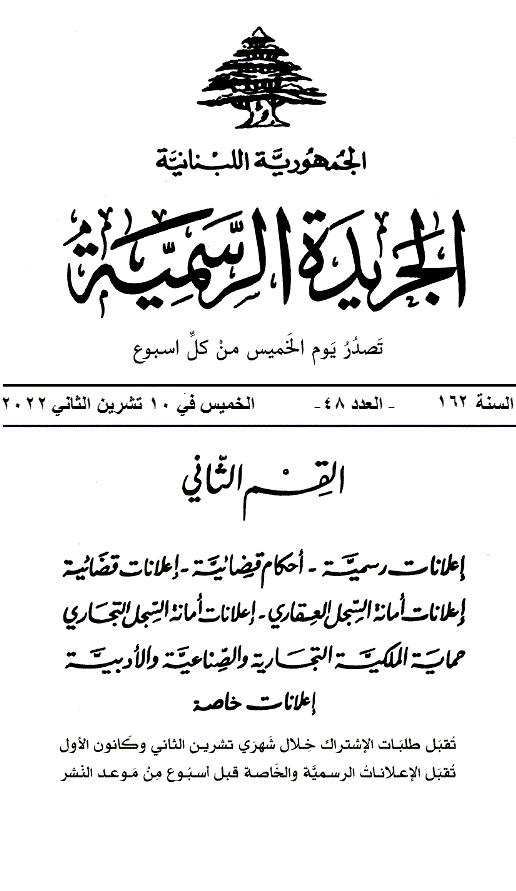 الجُمهُوريَّة اللبْنانيَّة
الجَريدَة الرَّسميَّة
تَصدُرُ يَوم الخَميس منْ كلِّ اسبوع
السنة ١٦٢ - العدد ٤٨- الخميس في ١٠ تشرين الثاني ٢٠٢٢
القِسْم الثَّاني
إعلانات رسميَّة - أحكام قضائيَّة - إعلانات قضائية
إعلانات أمانة السِّجل العقاري - إعلانات أمانة السِّجل التجاري
حماية الملكيَّة التجارية والصِّناعيَّة والأدبيَّة
إعلانات خاصة
تُقبَل طلبَات الإشتراك خِلال شَهرَي تشرين الثاني وكَانون الأول
تُقبَل الإعلاناتُ الرسميَّة والخَاصة قبل أسبُوع مِنْ مَوعد النَشر